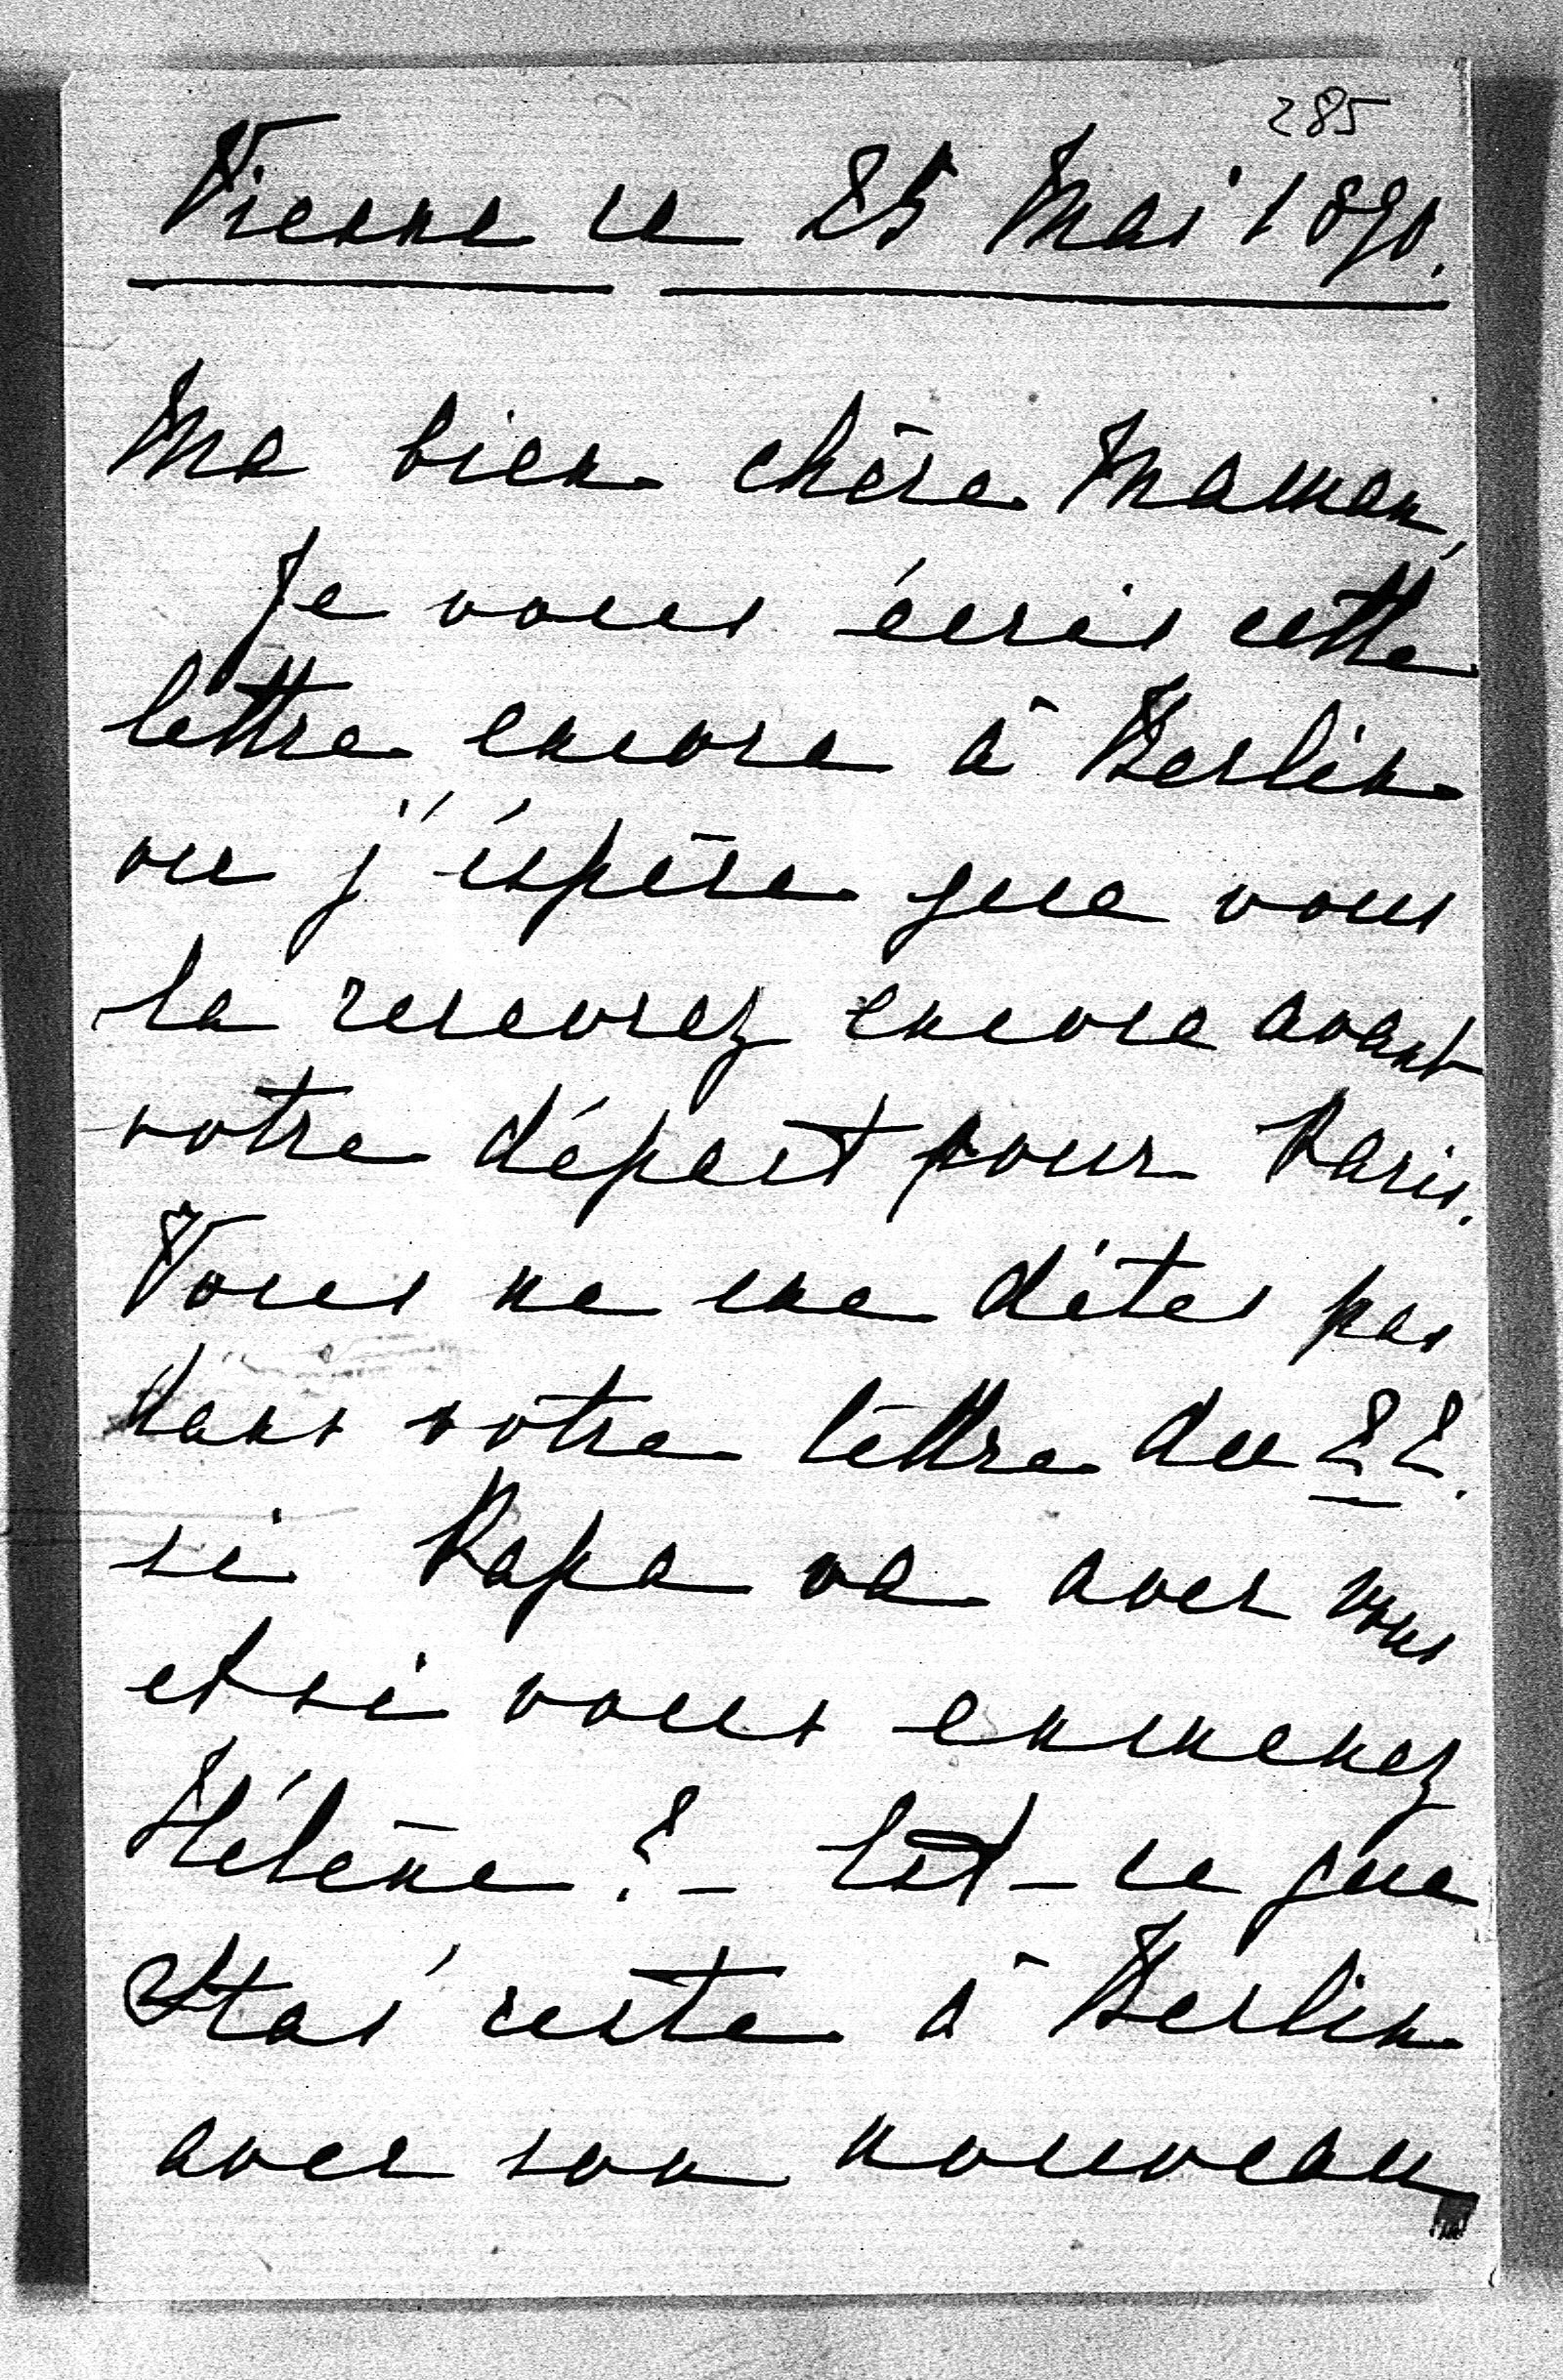 285
Vienne ce 25 Mai 1890.
Ma bien chère Maman,
Je vous écris cette
lettre encore à Berlin
ou j'éspère que vous
la recevrez encore avant
votre départ pour Paris.
Vous ne me dites pas
dans votre lettre du 22.
si Papa va avec vous
et si vous emmenez
Hélène? – Est-ce que
Stas' reste à Berlin
avec son nouveau